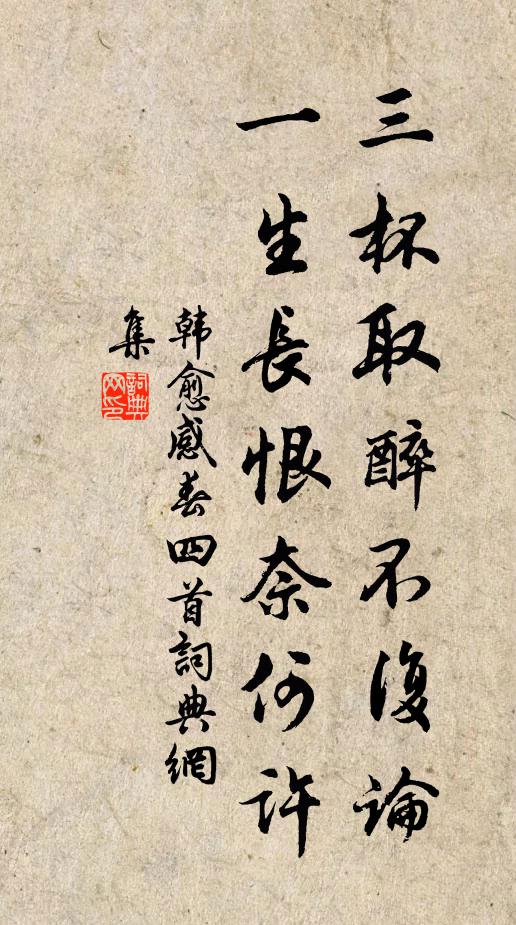 三杯取醉不復論
一生長恨奈何許
韩愈感春四首詞典網
集
詞典
网印